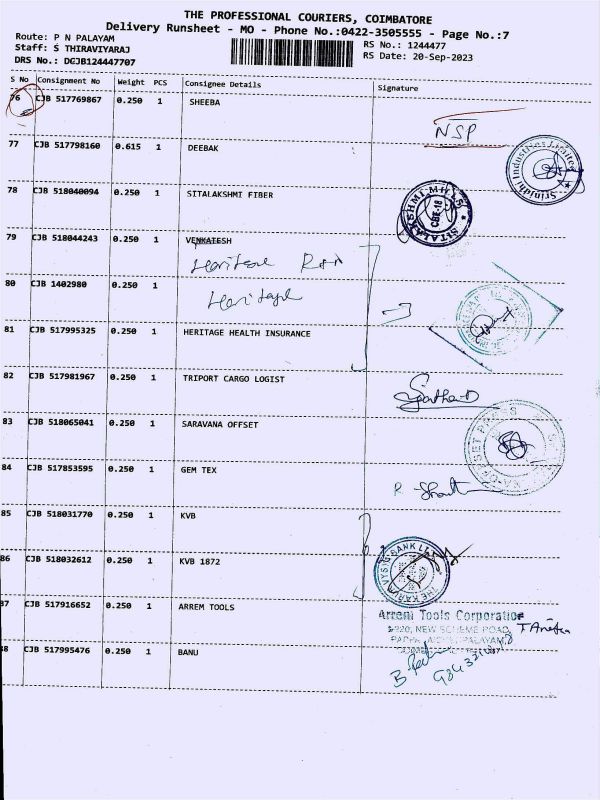 THE PROFESSIONAL COURIERS, COIMBATORE
Delivery Runsheet - MO - Phone No.:0422-3505555 - Page No.:7
Route: P N PALAYAM
Staff: S THIRAVIYARAJ
DRS No.: DGJB124447707
RS No.: 1244477
RS Date: 20-Sep-2023
S No Consignment No Weight PCS Consignee Details Signature
76 CJB 517769867 0.250 1 SHEEBA
NSP
77 CJB 517798160 0.615 1 DEEBAK
Industries Limited
78 CJB 518040094 0.250 1 SITALAKSHMI FIBER
SITALAKSHMI MILLS
CBE-18
79 CJB 518044243 0.250 1 VENKATESH
Heritage
80 CJB 1402980 0.250 1
Heritage
81 CJB 517995325 0.250 1 HERITAGE HEALTH INSURANCE
82 CJB 517981967 0.250 1 TRIPORT CARGO LOGIST
83 CJB 518065041 0.250 1 SARAVANA OFFSET
84 CJB 517853595 0.250 1 GEM TEX
85 CJB 518031770 0.250 1 KVB
86 CJB 518032612 0.250 1 KVB 1872
THE KARUR VYSYA BANK LTD
87 CJB 517916652 0.250 1 ARREM TOOLS
Arrem Tools Corporation
NEW SCHEME ROAD,
88 CJB 517995476 0.250 1 BANU